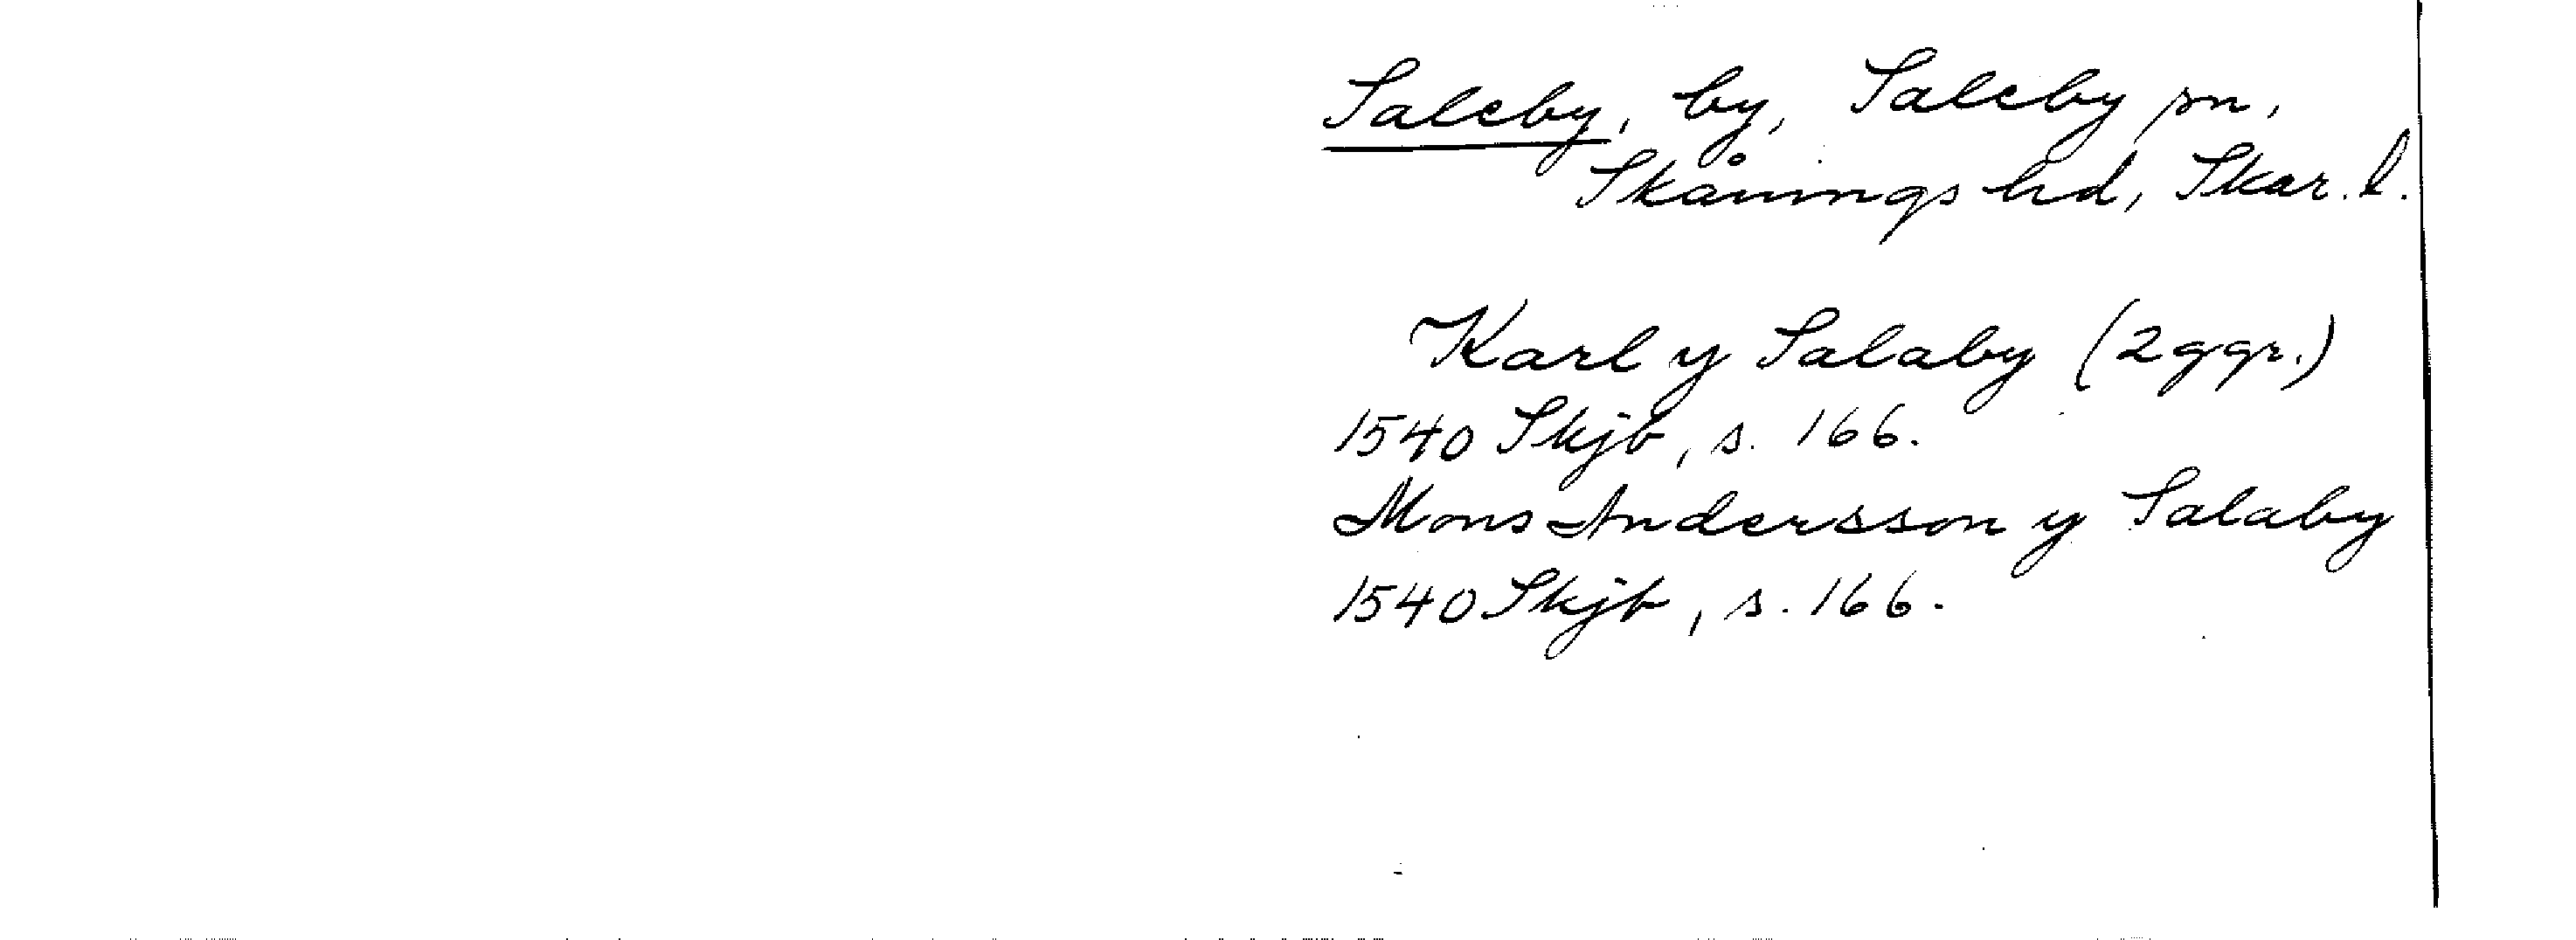 Saleby, by, Saleby sn,
Skånings hd, Skar. l.
Karl y Salaby (2 ggr.)
1540 Skjb, s. 166.
Mons Andersson y Salaby
1540 Skjb, s. 166.